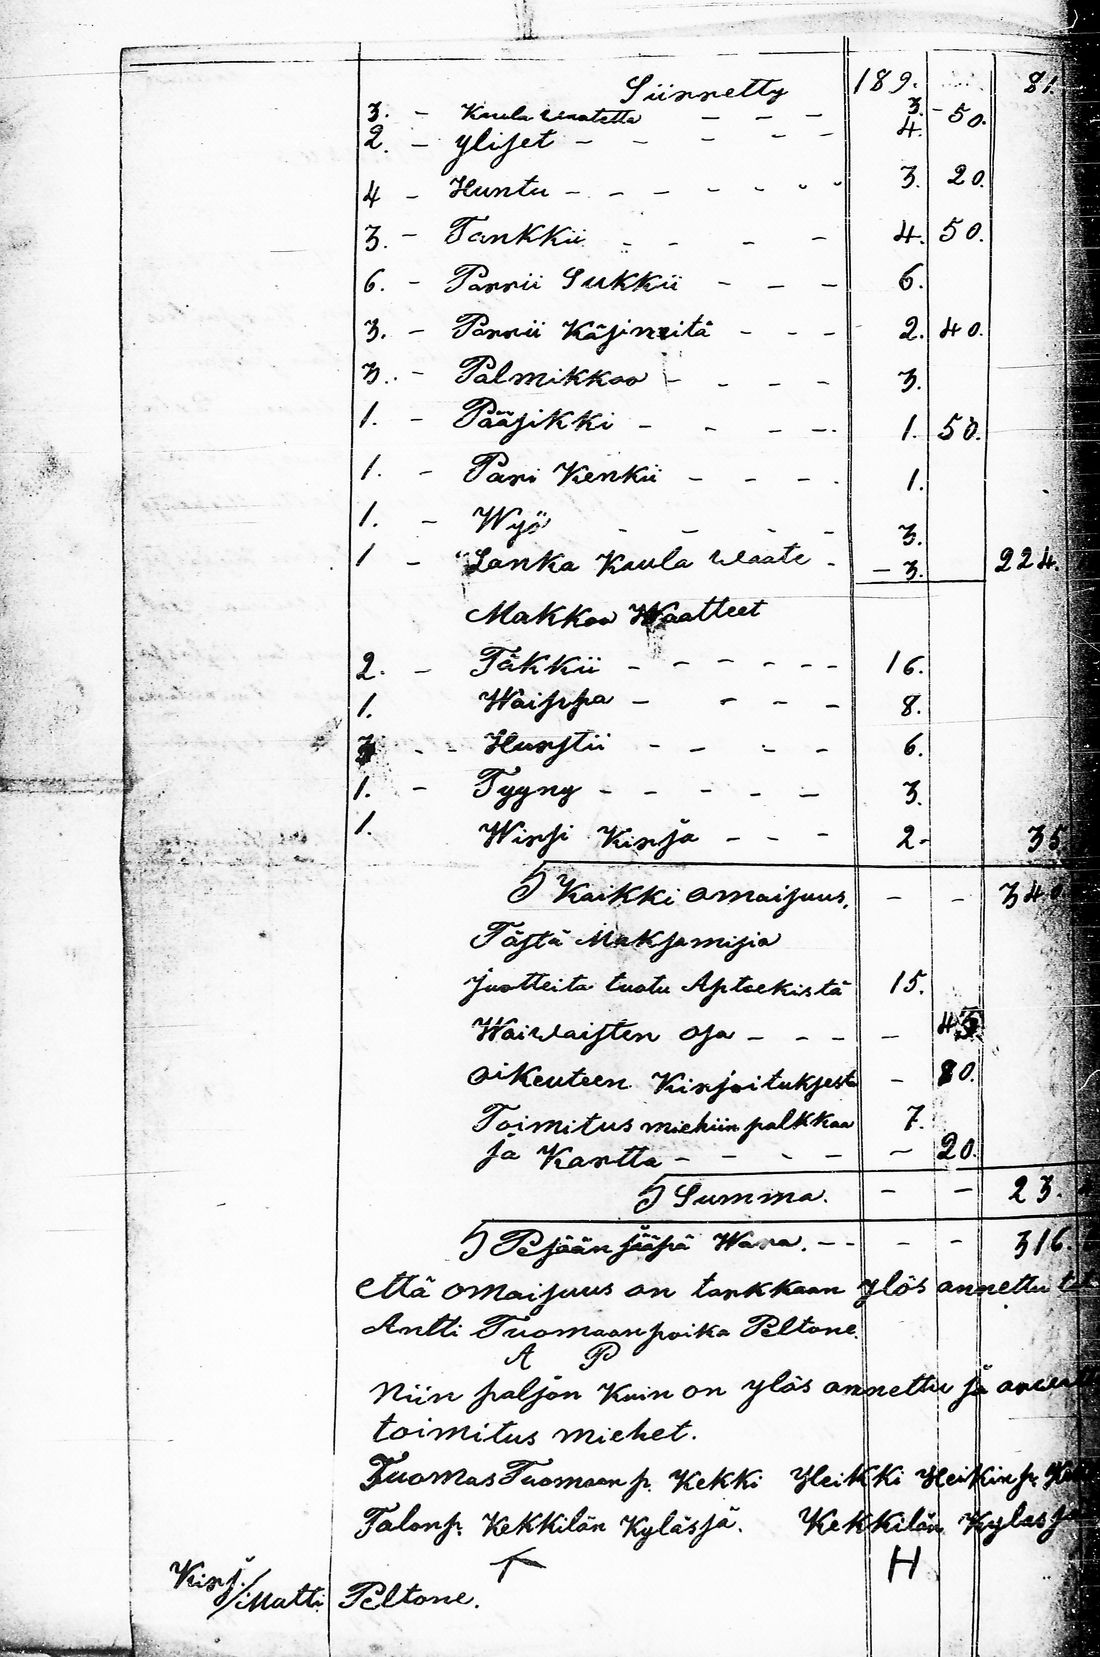 Siirretty 189. 81.
3. - Kaula waatetta - - - 3. - 50.
2. - ylijet - - - - - 4.
4 - Huntu - - - - - - - 3. 20.
3. - Tankkii - - - - 4. 50.
6. - Parrii Sukkii - - - 6.
3. - Parrii Käsineitä - - - 2. 40.
3. - Palmikkoo - - - - 3.
1. - Pääsikki - - - - 1. 50.
1. - Pari Kenkii - - - - 1.
1. - Wyö - - - - 3.
1 - Lanka Kaula Waate - - 3. 224.
Makkoo Waatteet
2. - Täkkii - - - - - - 16.
1. Waippa - - - - 8.
- - Hurstii - - - - 6.
1. - Tyyny - - - - - 3.
1. Wirsi Kirja - - - 2 - 35
5 Kaikki omaisuus. - - 340
Tästä Maksamisia
Juotteita tuotu Aptoekistä 15.
Waiwaisten osa - - - - - 45
oikeuteen Kirjoituksest - 80.
Toimitus miehiin palkkaa 7.
ja Kartta - - - - - 20.
5 Summa. - - 23.
5 Pesään jääpä Wara. - - - - 316.
että omaisuus on tarkkaan ylös annettu
Antti Tuomaanpoika Peltone.
A P
Niin paljon Kuin on ylös annettu ja
toimitus miehet.
Tuomas Tuomaan p. Kekki Heikki Heikin p.
Talonp. Kekkilän Kylässä. Kekkilän Kylässä
H
Kirj.
/Matti Peltone.